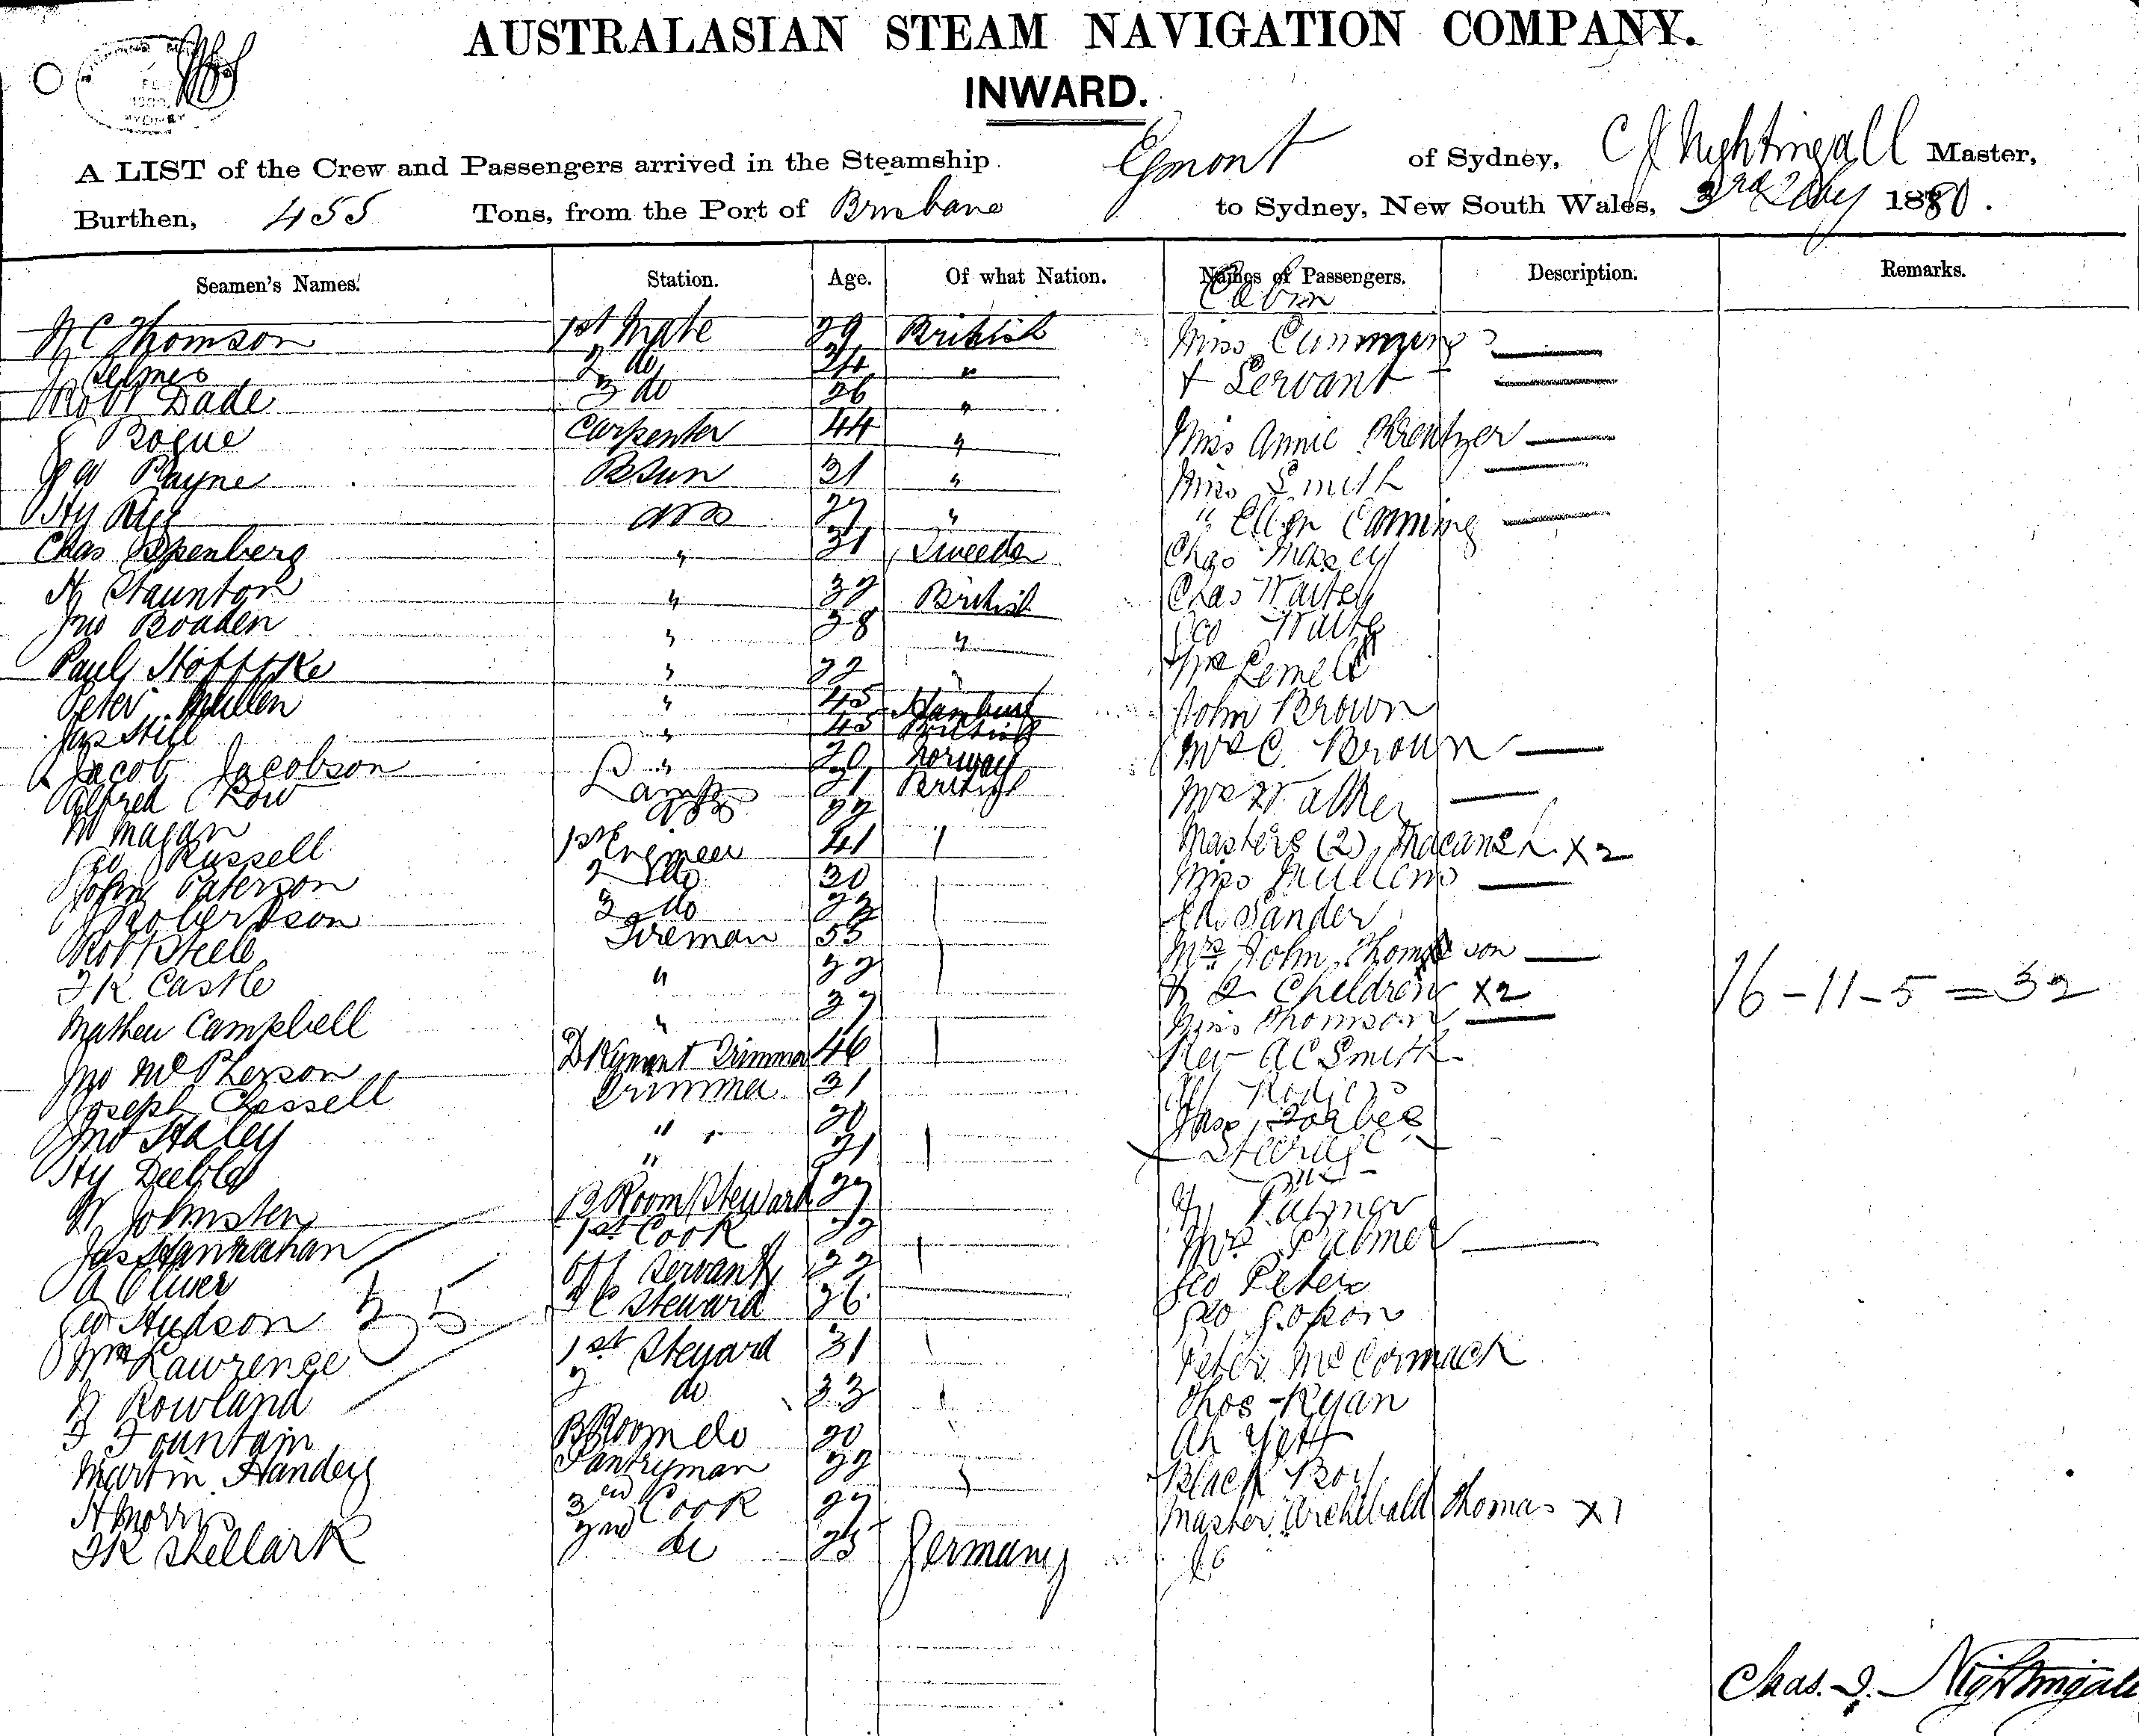 AUSTRALASIAN STEAM NAVIGATION COMPANY.
INWARD.
A LIST of the Crew and Passengers arrived in the Steamship Egmont of Sydney, C J Nightingall Master,
Burthen, 455 Tons, from the Port of Brisbane to Sydney, New South Wales, 3rd 1880.
Seamen's Names. Station. Age. Of what Nation. Names of Passengers. Description. Remarks.
Cabin
C Thomson 1st Mate 29 British Miss Cumming
2 do 24 " + Servant
Robt Dade 3 do 26 "
Bogue Carpenter 44 " Miss Annie
Payne Bosun 31 " Miss Smith
Hy AB 27 " " Ellen Canning
Chas " 31 Sweeden Chas Massey
H Staunton " 32 British Chas
Jno Boaden " 38 " Geo
Paul " 22 "
Peter Mullen " 45 Hamburg John Brown
Jas Still " 45 British Mrs C. Brown
Jacob Jacobson " 20 Norway
Alfred Row Lamps 21 British Mrs Walker
W Magan ABS 22
Geo Russell 1st Engineer 41 Masters (2) x 2
John Paterson 2 do 30 Miss Mullens
J Robertson 3 do 23 Sander
Robt Steele Fireman 55 Mrs John Thompson
J R Castle " 22 & 2 Children x2
16-11-5=32
Mathew Campbell " 27 Miss Thomson
Jno McPherson Trimmer 46 Rev A C Smith
Joseph Cassell Trimmer 31
Jno Haley " " 20 Jas Forbes
Hy " 21 Steerage
W Johnsten B Room Steward 27 Palmer
Jas Hanrahan 1st Cook 22 Mrs Palmer
A Oliver Off Servant 22 Geo Peter
Geo Hudson 35 F C Steward 26 Geo
Wm Lawrence 1st Steward 31 Peter McCormack
Rowland 2 do 33 Thos Ryan
F Fountain B Room do 20 Ah
Martin Handey Pantryman 22 Black Boy
H Morris Cook 27 Master Archibald Thomas x1
J R Shellark 2nd do 25 Germany
Chas. J. Nightingall